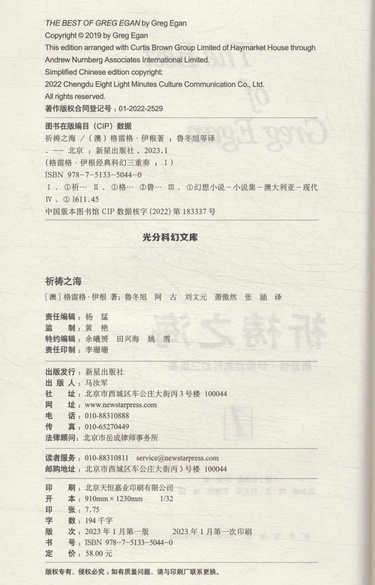 THE BEST OF GREG EGAN by Greg Egan
Copyright © 2019 by Greg Egan
This edition arranged with Curtis Brown Group Limited of Haymarket House through
Andrew Nurnberg Associates International Limited.
Simplified Chinese edition copyright:
2022 Chengdu Eight Light Minutes Culture Communication Co., Ltd.
All rights reserved.
著作版权合同登记号:01-2022-2529
图书在版编目(CIP)数据
祈祷之海 /(澳)格雷格·伊根著;鲁冬旭等译
. -- 北京:新星出版社, 2023.1
(格雷格·伊根经典科幻三重奏;Ⅰ)
ISBN 978-7-5133-5044-0
Ⅰ. ①祈… Ⅱ. ①格… ②鲁… Ⅲ. ①幻想小说-小说集-澳大利亚-现代
Ⅳ. ①I611.45
中国版本图书馆 CIP 数据核字 (2022) 第 183337 号
光分科幻文库
祈祷之海
[澳] 格雷格·伊根 著;鲁冬旭 阿古 刘文元 萧傲然 张涵 译
责任编辑:杨 猛
监 制:黄 艳
特约编辑:余曦赟 田兴海 姚 雪
责任印制:李珊珊
出版发行:新星出版社
出 版 人:马汝军
社 址:北京市西城区车公庄大街丙3号楼 100044
网 址:www.newstarpress.com
电 话:010-88310888
传 真:010-65270449
法律顾问:北京市岳成律师事务所
读者服务:010-88310811 service@newstarpress.com
邮购地址:北京市西城区车公庄大街丙3号楼 100044
印 刷:北京天恒嘉业印刷有限公司
开 本:910mm×1230mm 1/32
印 张:7.75
字 数:194千字
版 次:2023年1月第一版 2023年1月第一次印刷
书 号:ISBN 978-7-5133-5044-0
定 价:58.00元
版权专有,侵权必究;如有质量问题,请与印刷厂联系更换。